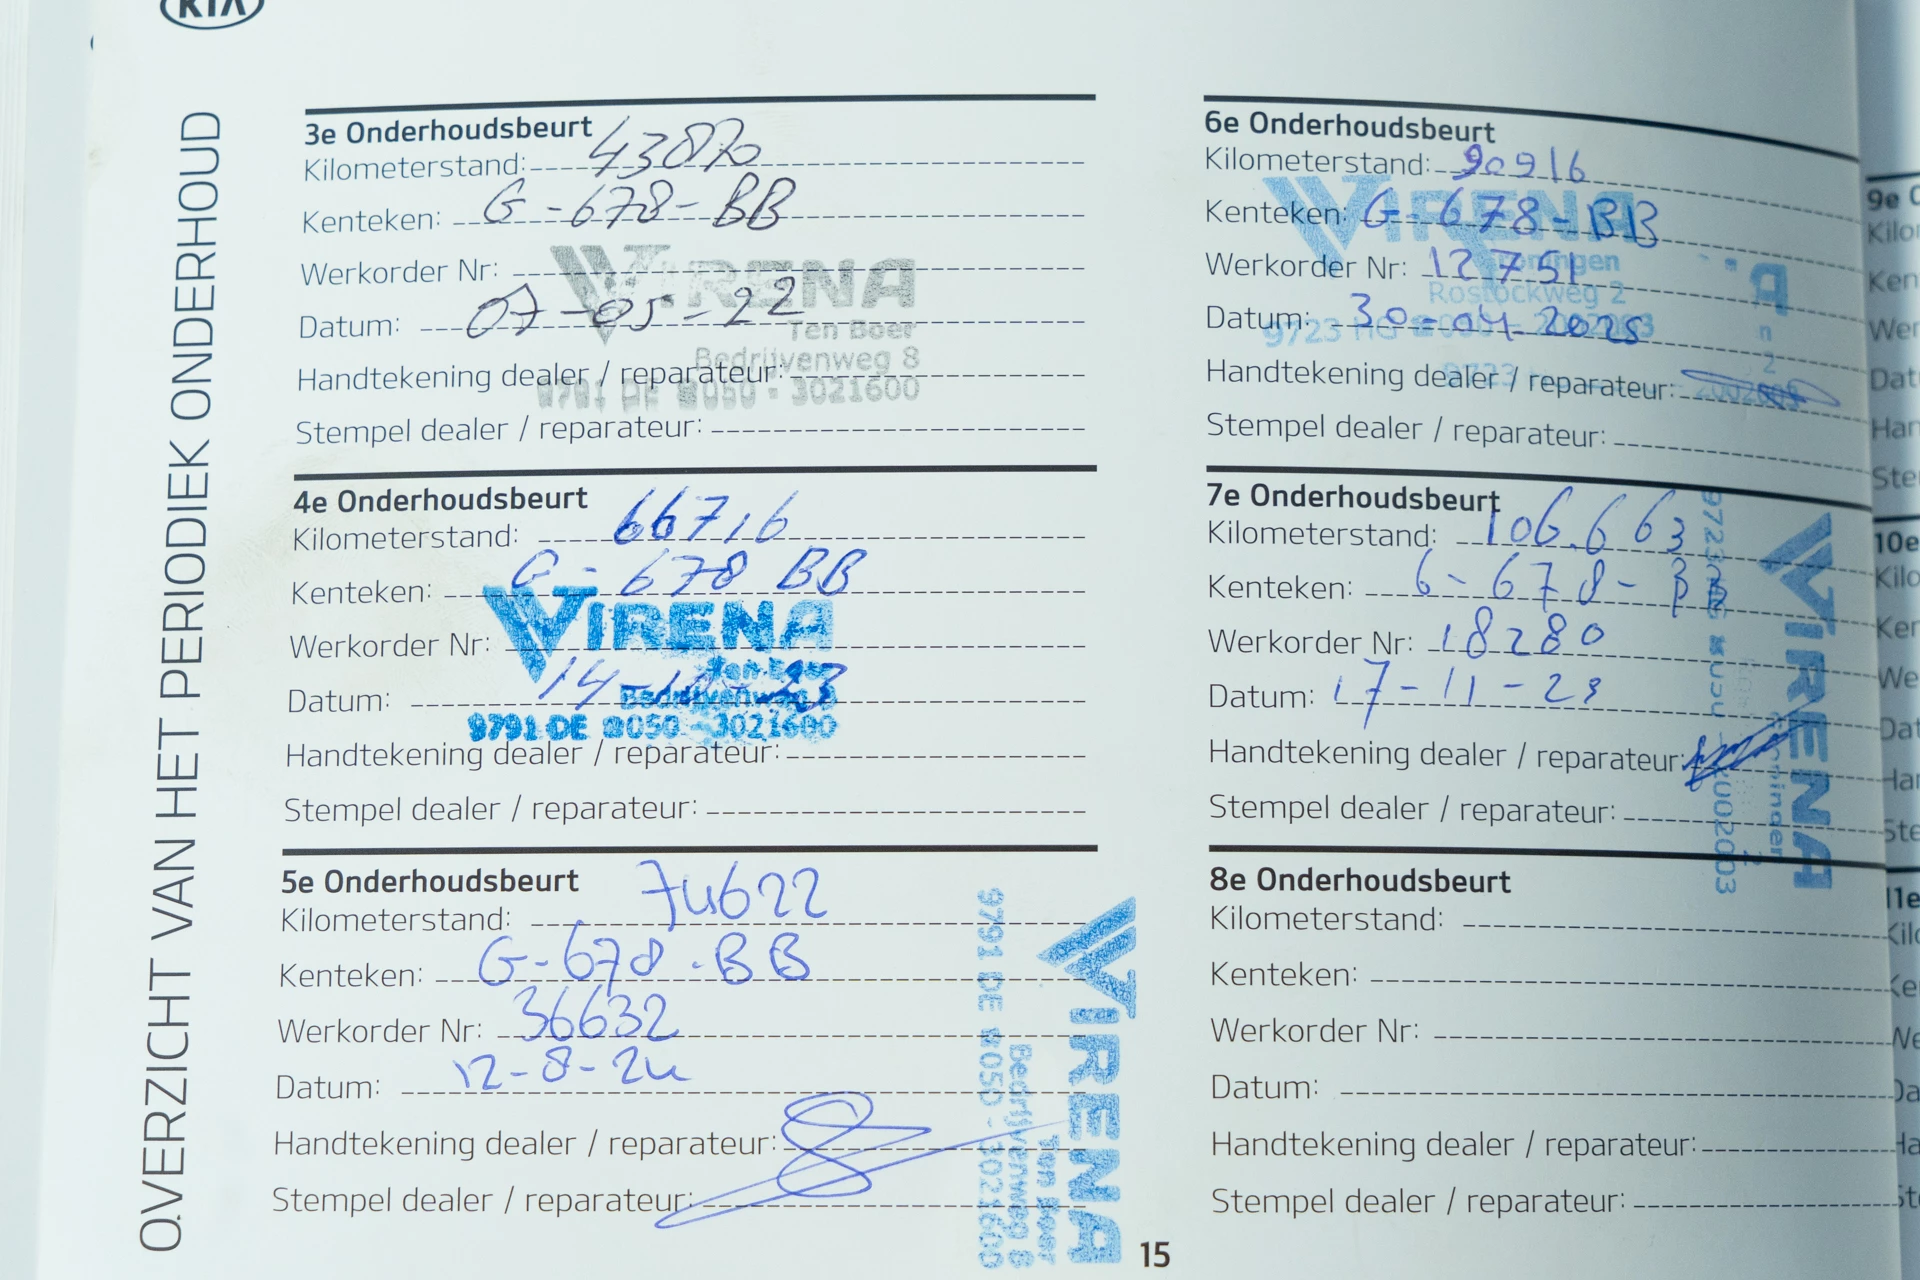 KIA
OVERZICHT VAN HET PERIODIEK ONDERHOUD
3e Onderhoudsbeurt
Kilometerstand: 43870
Kenteken: G-678-BB
Werkorder Nr:
Datum: 07-05-22
Handtekening dealer / reparateur:
Stempel dealer / reparateur:
VIRENA
Ten Boer
Bedrijvenweg 8
9791 DE ☎050 - 3021600
4e Onderhoudsbeurt
Kilometerstand: 66716
Kenteken: G-678 BB
Werkorder Nr:
Datum: 14-
Handtekening dealer / reparateur:
Stempel dealer / reparateur:
VIRENA
Ten Boer
Bedrijvenweg 8
9791 DE ☎050 - 3021600
5e Onderhoudsbeurt
Kilometerstand: 74622
Kenteken: G-678-BB
Werkorder Nr: 36632
Datum: 12-8-24
Handtekening dealer / reparateur:
Stempel dealer / reparateur:
VIRENA
Ten Boer
Bedrijvenweg 8
9791 DE ☎050 - 3021600
15
6e Onderhoudsbeurt
Kilometerstand: 90916
Kenteken: G-678-BB
Werkorder Nr: 12751
Datum: 30-04-2025
Handtekening dealer / reparateur:
Stempel dealer / reparateur:
VIRENA
Groningen
Rostockweg 2
9723 HG
2002003
7e Onderhoudsbeurt
Kilometerstand: 106.663
Kenteken: G-678-BB
Werkorder Nr: 18280
Datum: 17-11-
Handtekening dealer / reparateur:
Stempel dealer / reparateur:
VIRENA
8e Onderhoudsbeurt
Kilometerstand:
Kenteken:
Werkorder Nr:
Datum:
Handtekening dealer / reparateur:
Stempel dealer / reparateur:
9e
10e
11e